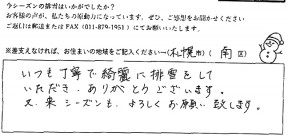 今シーズンの排雪はいかがでしたか？
お客様の声が、私たちの原動力になっています。ぜひ、ご感想をお聞かせください
ご返信は郵送またはFAX(011-879-1951)にてお願いいたします。
※差支えなければ、お住まいの地域をご記入ください→(札幌市)(南区)
いつも丁寧で綺麗に排雪をして
いただき、ありがとうございます。
又、来シーズンも、よろしくお願い致します。